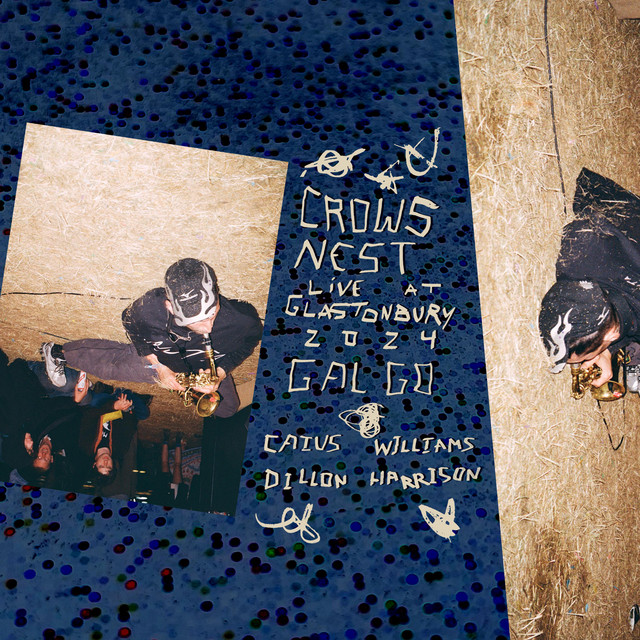 CROWS
NEST
LiVE AT
GLASTONBURY
2024
GALGO
CAIUS WILLIAMS
DILLON HARRISON